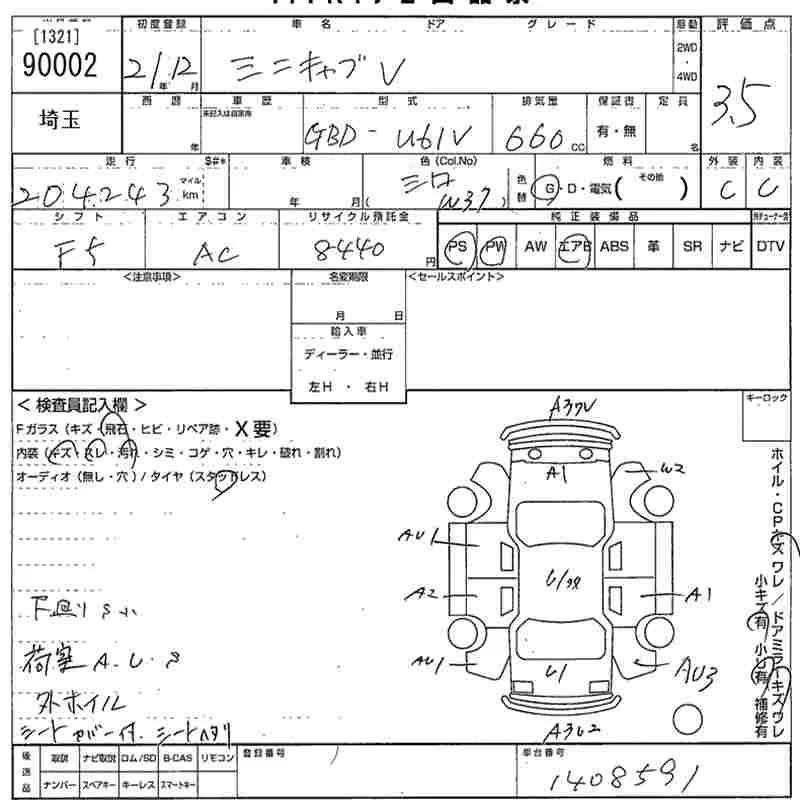 [1321]
90002
初度登録
車名
ドア
グレード
駆動
評価点
21年12月
ミニキャブV
2WD
・
4WD
3.5
埼玉
西暦
年
車歴
型式
GBD-U61V
排気量
660cc
保証書
有・無
定員
名
走行
$#*
204,243
マイル
km
車検
年 月(
色(Col.No)
シロ
W37)
色替
燃料
G・D・電気( その他 )
外装
C
内装
C
シフト
F5
エアコン
AC
リサイクル預託金
8440円
純正装備品
PS PW AW エアB ABS 革 SR ナビ DTV
<注意事項>
名変期限
月 日
<セールスポイント>
輸入車
ディーラー・並行
左H ・ 右H
<検査員記入欄>
キーロック
Fガラス(キズ・飛石・ヒビ・リペア跡・X要)
内装(キズ・スレ・汚れ・シミ・コゲ・穴・キレ・破れ・割れ)
オーディオ(無し・穴)/タイヤ(スタッドレス)
A3クV
A1
W2
AU1
A2
A1
AU1
U1
AU3
F廻りS小
荷室A.U.S
外ホイル
シートカバー付.シートヘタリ
ホイル・CPキズ ワレ/ドアミラーキズワレ
小キズ有 小U有 補修有
後送品
取説 ナビ取説 ロム/SD B-CAS リモコン
ナンバー スペアキー キーレス スマートキー
登録番号
車台番号
1408591